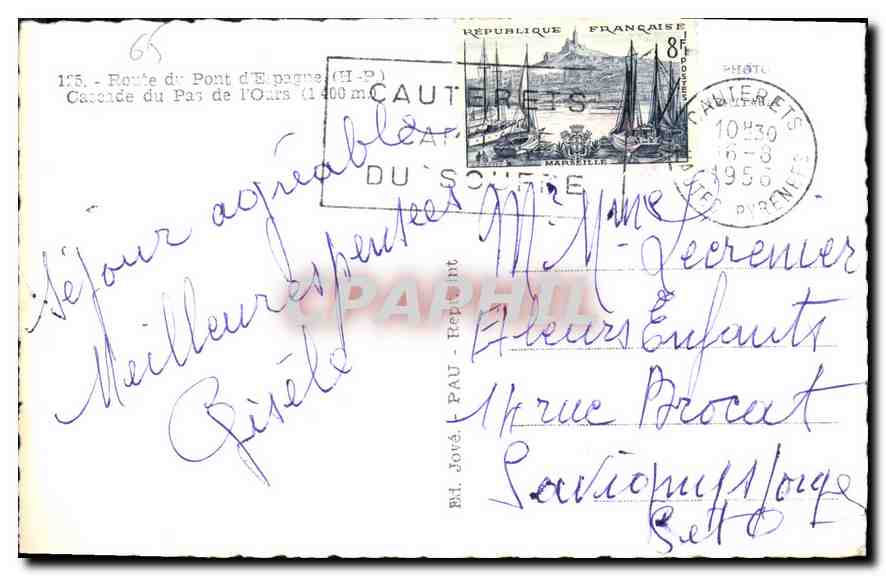 65
125. - Route du Pont d'Espagne (H-P.)
Cascade du Pas de l'Ours (1 400 m.)
RÉPUBLIQUE FRANÇAISE
8F
POSTES
MARSEILLE
PHOTO
CAUTERETS
DU SOUFRE
CAUTERETS
10H30
6-8
1956
HTES PYRENEES
Séjour agréable
Meilleures pensées
Gisèle
Ed. Jové. - PAU - Rept. int
Mr Mme Lecrenier
et leurs Enfants
14 rue Brocat
Savigny s/orge
S et O
CPAPHIL